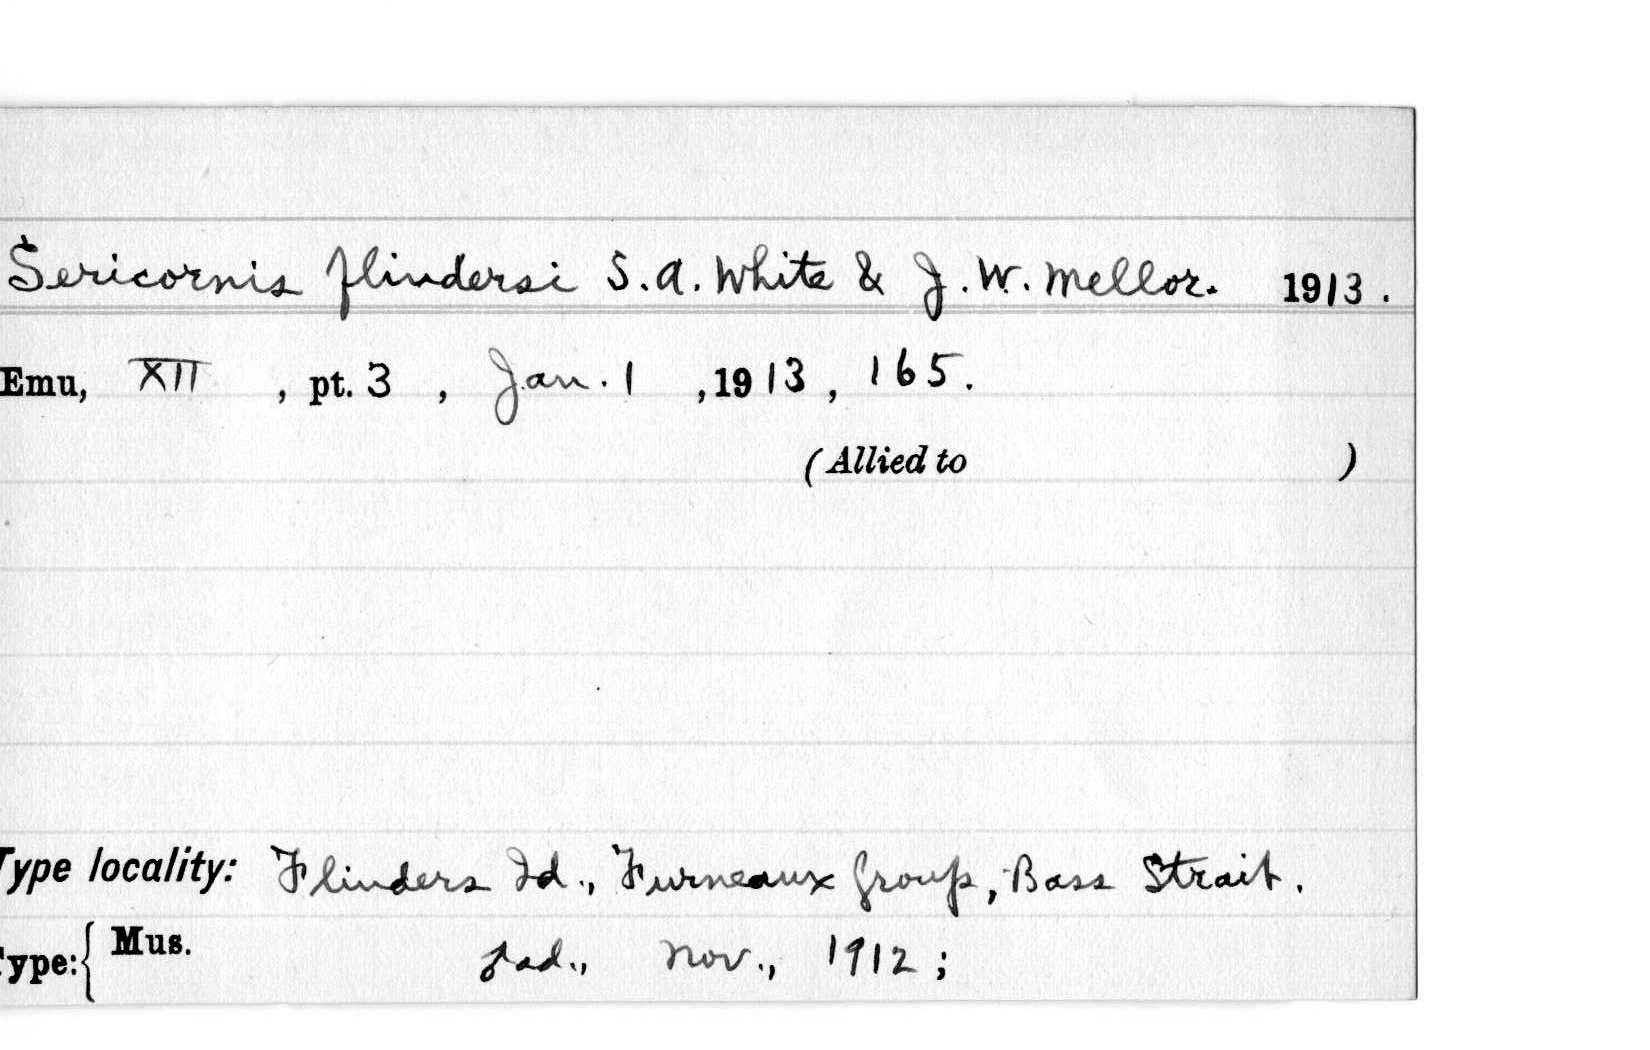 Sericornis flindersi S.A. White & J.W. Mellor. 1913.
Emu, XII, pt. 3, Jan. 1, 1913, 165.
(Allied to )
Type locality: Flinders Id., Furneaux Group, Bass Strait.
Type: { Mus. ad., Nov., 1912;